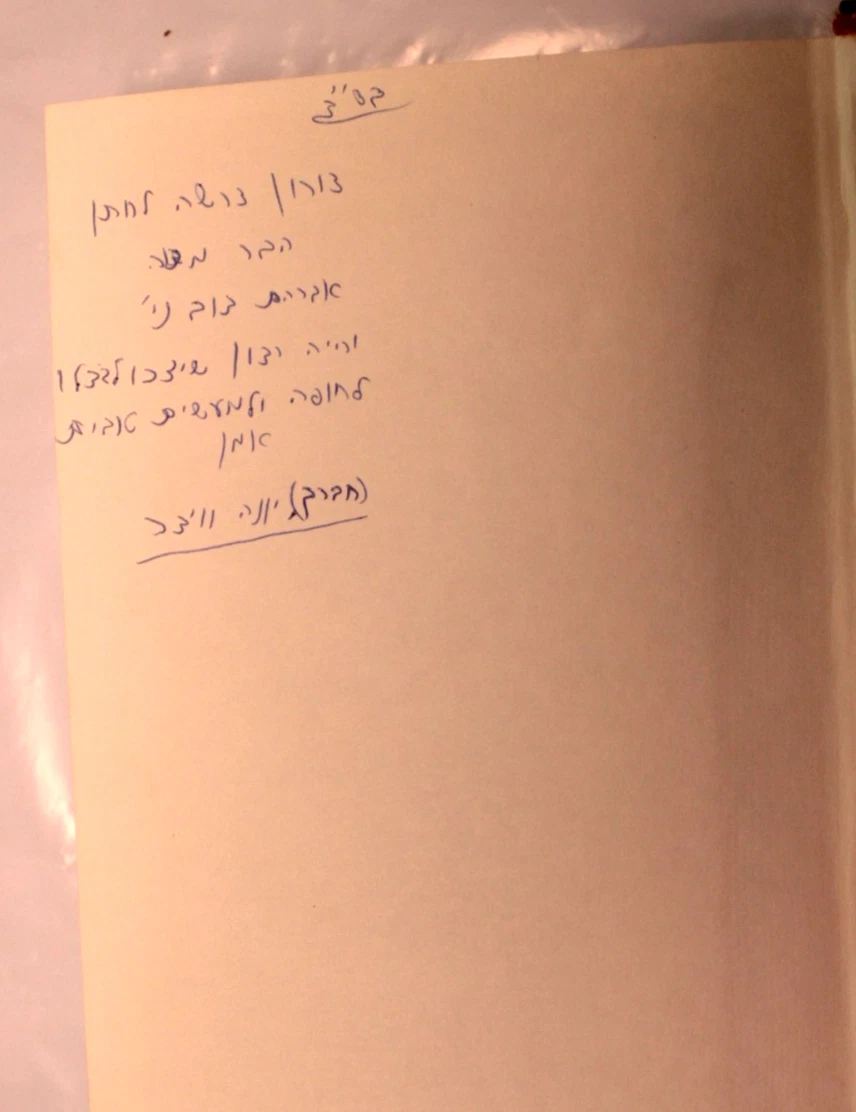 בס"ד
דורון דרשה לחתן
הבר מצוה
אברהם דוב ני'
ויהי רצון שיזכו לגדלו
לחופה ולמעשים טובים
אמן
(חברך) יונה ווידר